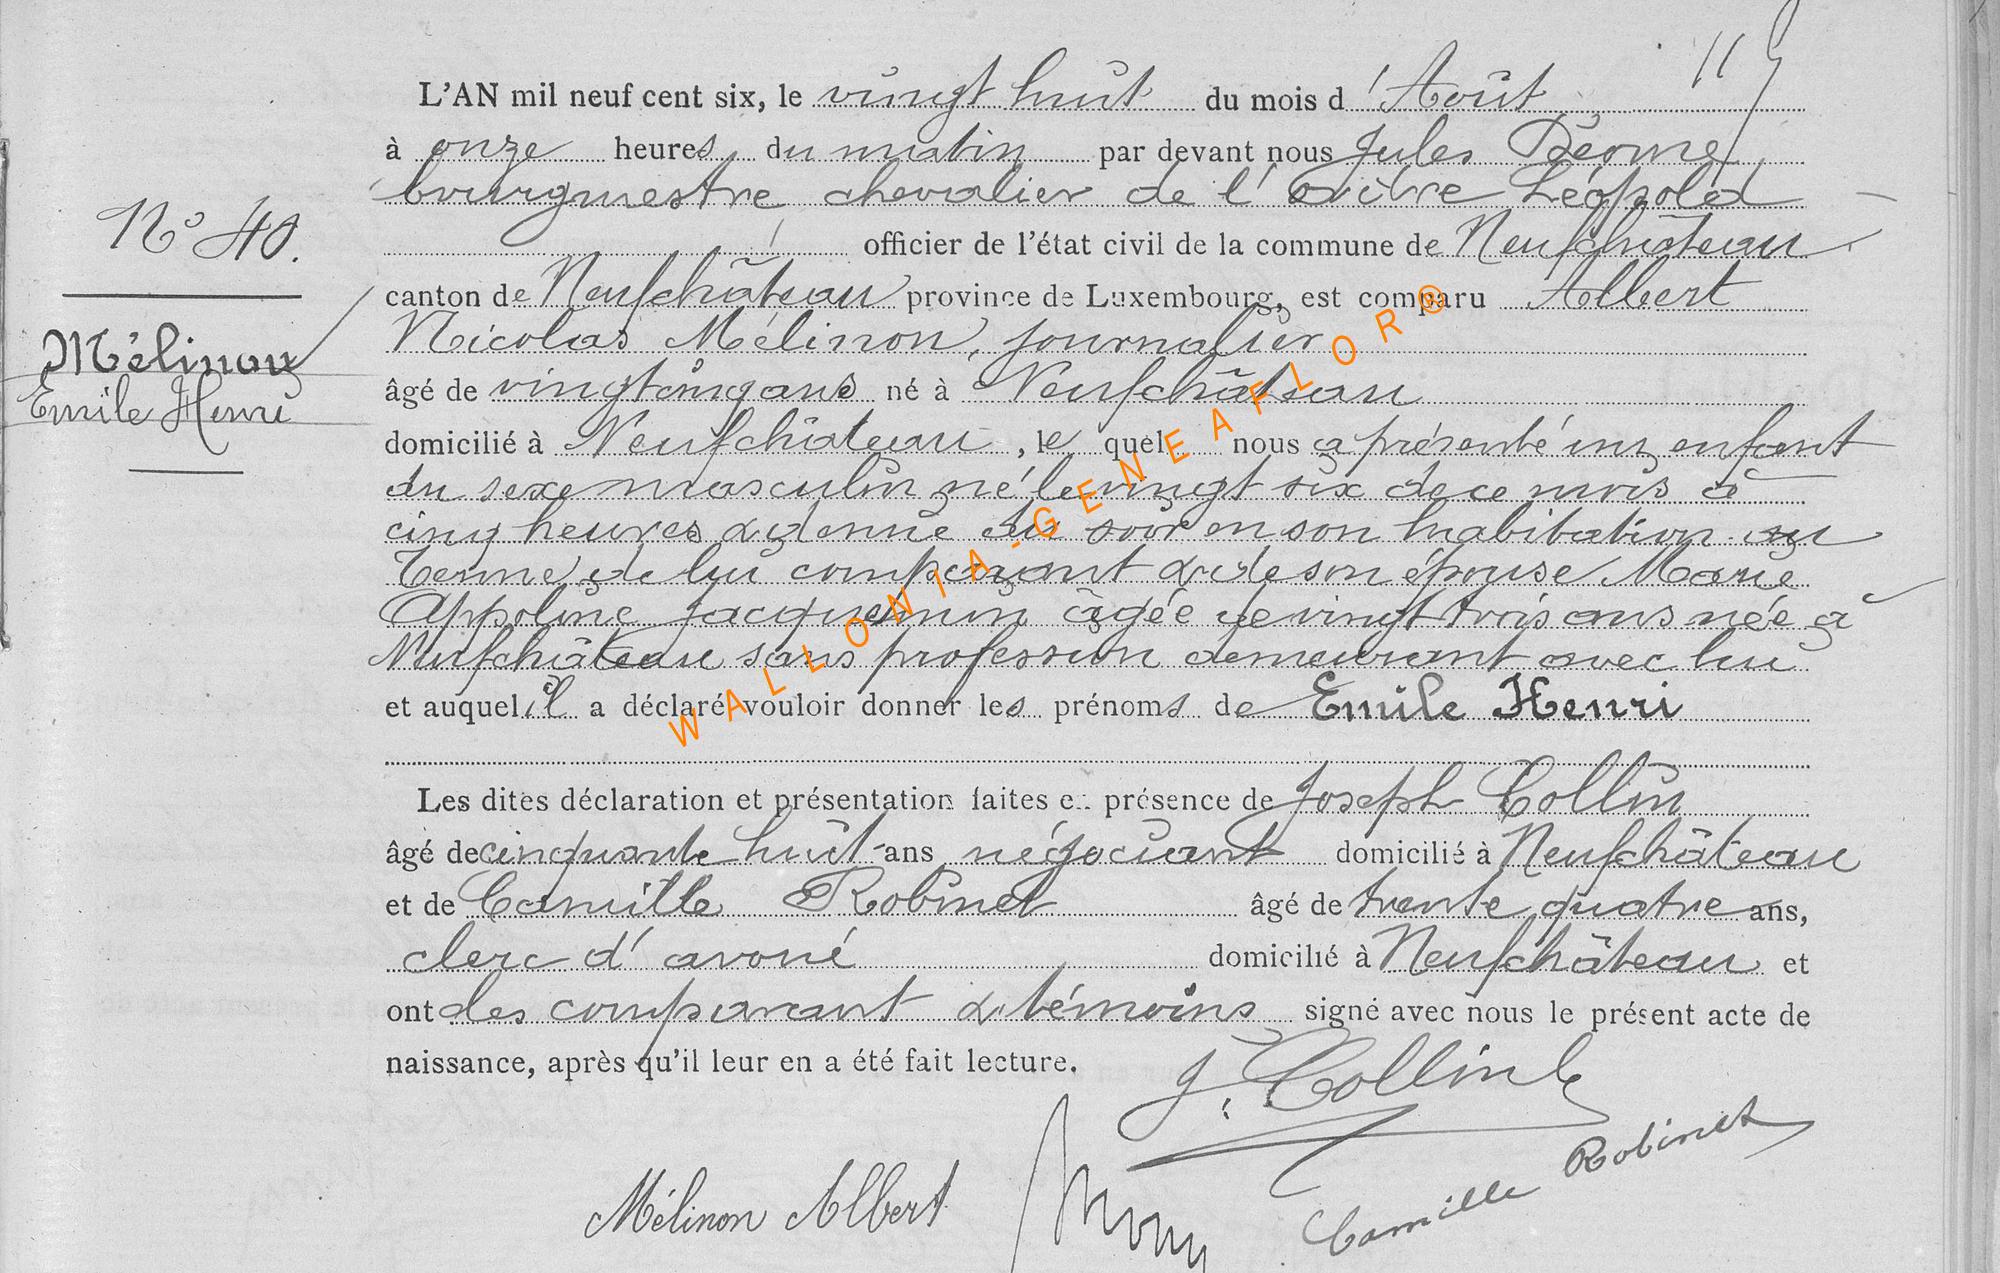 L'AN mil neuf cent six, le vingt huit du mois d'Août
à onze heures du matin par devant nous Jules
bourgmestre, chevalier de l'ordre Léopold
officier de l'état civil de la commune de Neufchâteau
N° 40.
canton de Neufchâteau province de Luxembourg, est comparu Albert
Nicolas Mélinon, journalier
Mélinon
âgé de vingt cinq ans né à Neufchâteau
Emile Henri
domicilié à Neufchâteau, le quel nous a présenté un enfant
du sexe masculin né le vingt six de ce mois à
cinq heures & demie du soir en son habitation au
Terme, de lui comparant & de son épouse Marie
Appoline Jacquemin âgée de vingt trois ans née à
Neufchâteau sans profession demeurant avec lui
et auquel il a déclaré vouloir donner les prénoms de Emile Henri
Les dites déclaration et présentation faites en présence de Joseph Collin
âgé de cinquante huit ans négociant domicilié à Neufchâteau
et de Camille Robinet âgé de trente quatre ans,
clerc d'avoué domicilié à Neufchâteau et
ont les comparant & témoins signé avec nous le présent acte de
naissance, après qu'il leur en a été fait lecture.
J. Collin
Camille Robinet
Mélinon Albert
WALLONIA-GENEAFLOR®